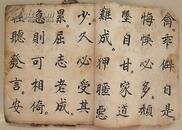 禽乖僻自是
悔悞必多頹
墮自甘家道
難成狎暱惡
少久必受其
累屈志老成
急則可相倚
輕聽發言安